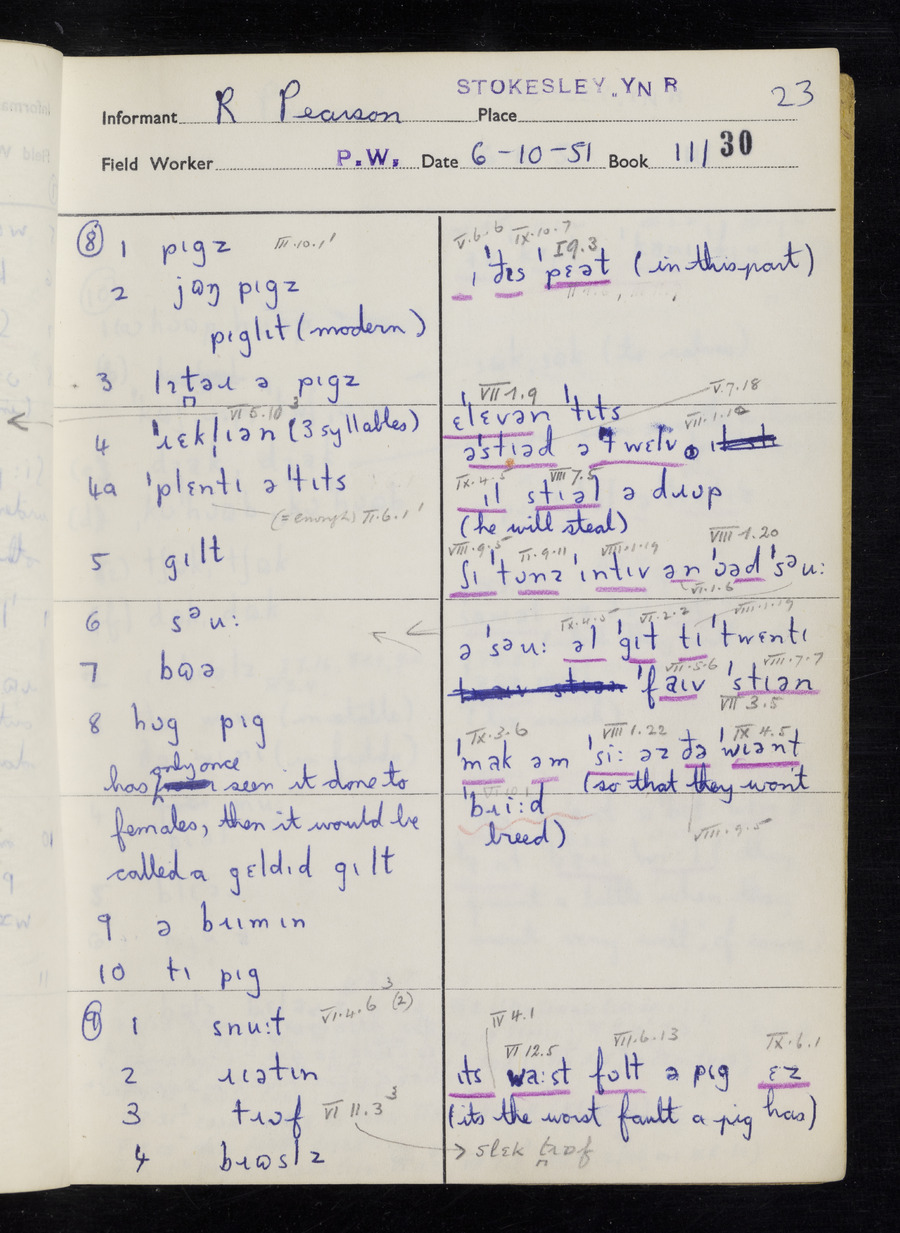 STOKESLEY, YN R
23
Informant R Pearson Place
Field Worker P.W. Date 6-10-51 Book 11/30
⑧ 1 pɪgz III.10.1'
2 jɑŋ pɪgz
pɪglɪt (modern)
3 lɪtəɹ ə pɪgz
VI 5.10 3
4 'ɹɛklɪən (3 syllables)
4a 'plɛntɪ ə 'tɪts
(= enough) VI.6.1'
5 gɪlt
6 səu:
7 bɷə
8 hʊg pɪg
only once
has seen it done to
females, then it would be
called a gɛldɪd gɪlt
9 ə bɹɪmɪn
10 tɪ pɪg
⑨ 1 snu:t VI.4.6 3 (2)
2 ɹɪətɪn
3 tɹɷf VI 11.3 3
4 bɹɷslz
V.6.6 IX.10.7
I9.3
ɪ 'ðɪs 'pɛət (in this part)
VII 1.9 V.7.18
ɛlɛvən 'tɪts VII.1.10
əstɪəd ə 'twɛlv
IX.4.5 VIII 7.5
ɪl stɪəl ə dɪup
(he will steal)
VIII.9.5 II.9.11 VIII.1.19 VIII 1.20
ʃɪ 'tɔnz 'ɪntɪv ən 'ɔəd 'səu:
VII.1.6
IX.4.5 VI.2.2 VIII.1.19
ə 'səu: əl 'gɪt tɪ 'twɛntɪ
VII.5.6 VIII.7.7
'faɪv 'stɪən
VII 3.5
IX.3.6 VIII 1.22 IX 4.5
'mɑk əm 'si: əz ðə 'wɪənt
(so that they won't
'bɹi:d
breed) VIII.9.5
IV 4.1
VI 12.5 VII.6.13 IX.6.1
ɪts wa:st fɔlt ə pɪg ɛz
(its the worst fault a pig has)
→ slɛk tɹɷf